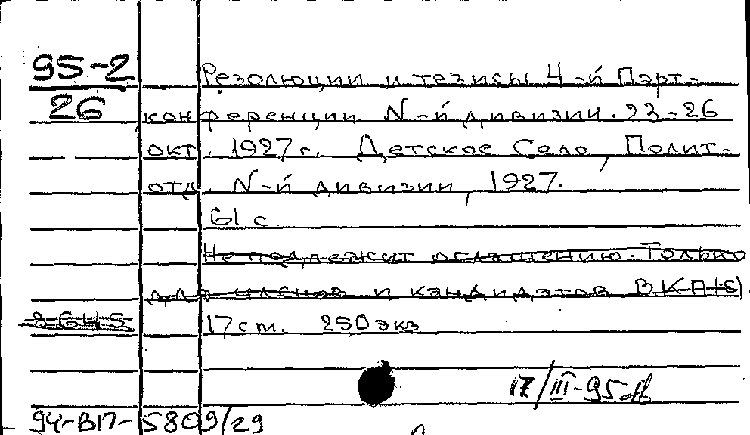 95-2
26
Резолюции и тезисы 4-й Парт-
конференции N-й дивизии. 23-26
окт. 1927 г. Детское Село, Полит-
отд. N-й дивизии, 1927.
61 с
Не подлежит оглашению. Только
для членов и кандидатов ВКП(б).
17 ст. 250 экз
17/III-95
94-В17-5809/29